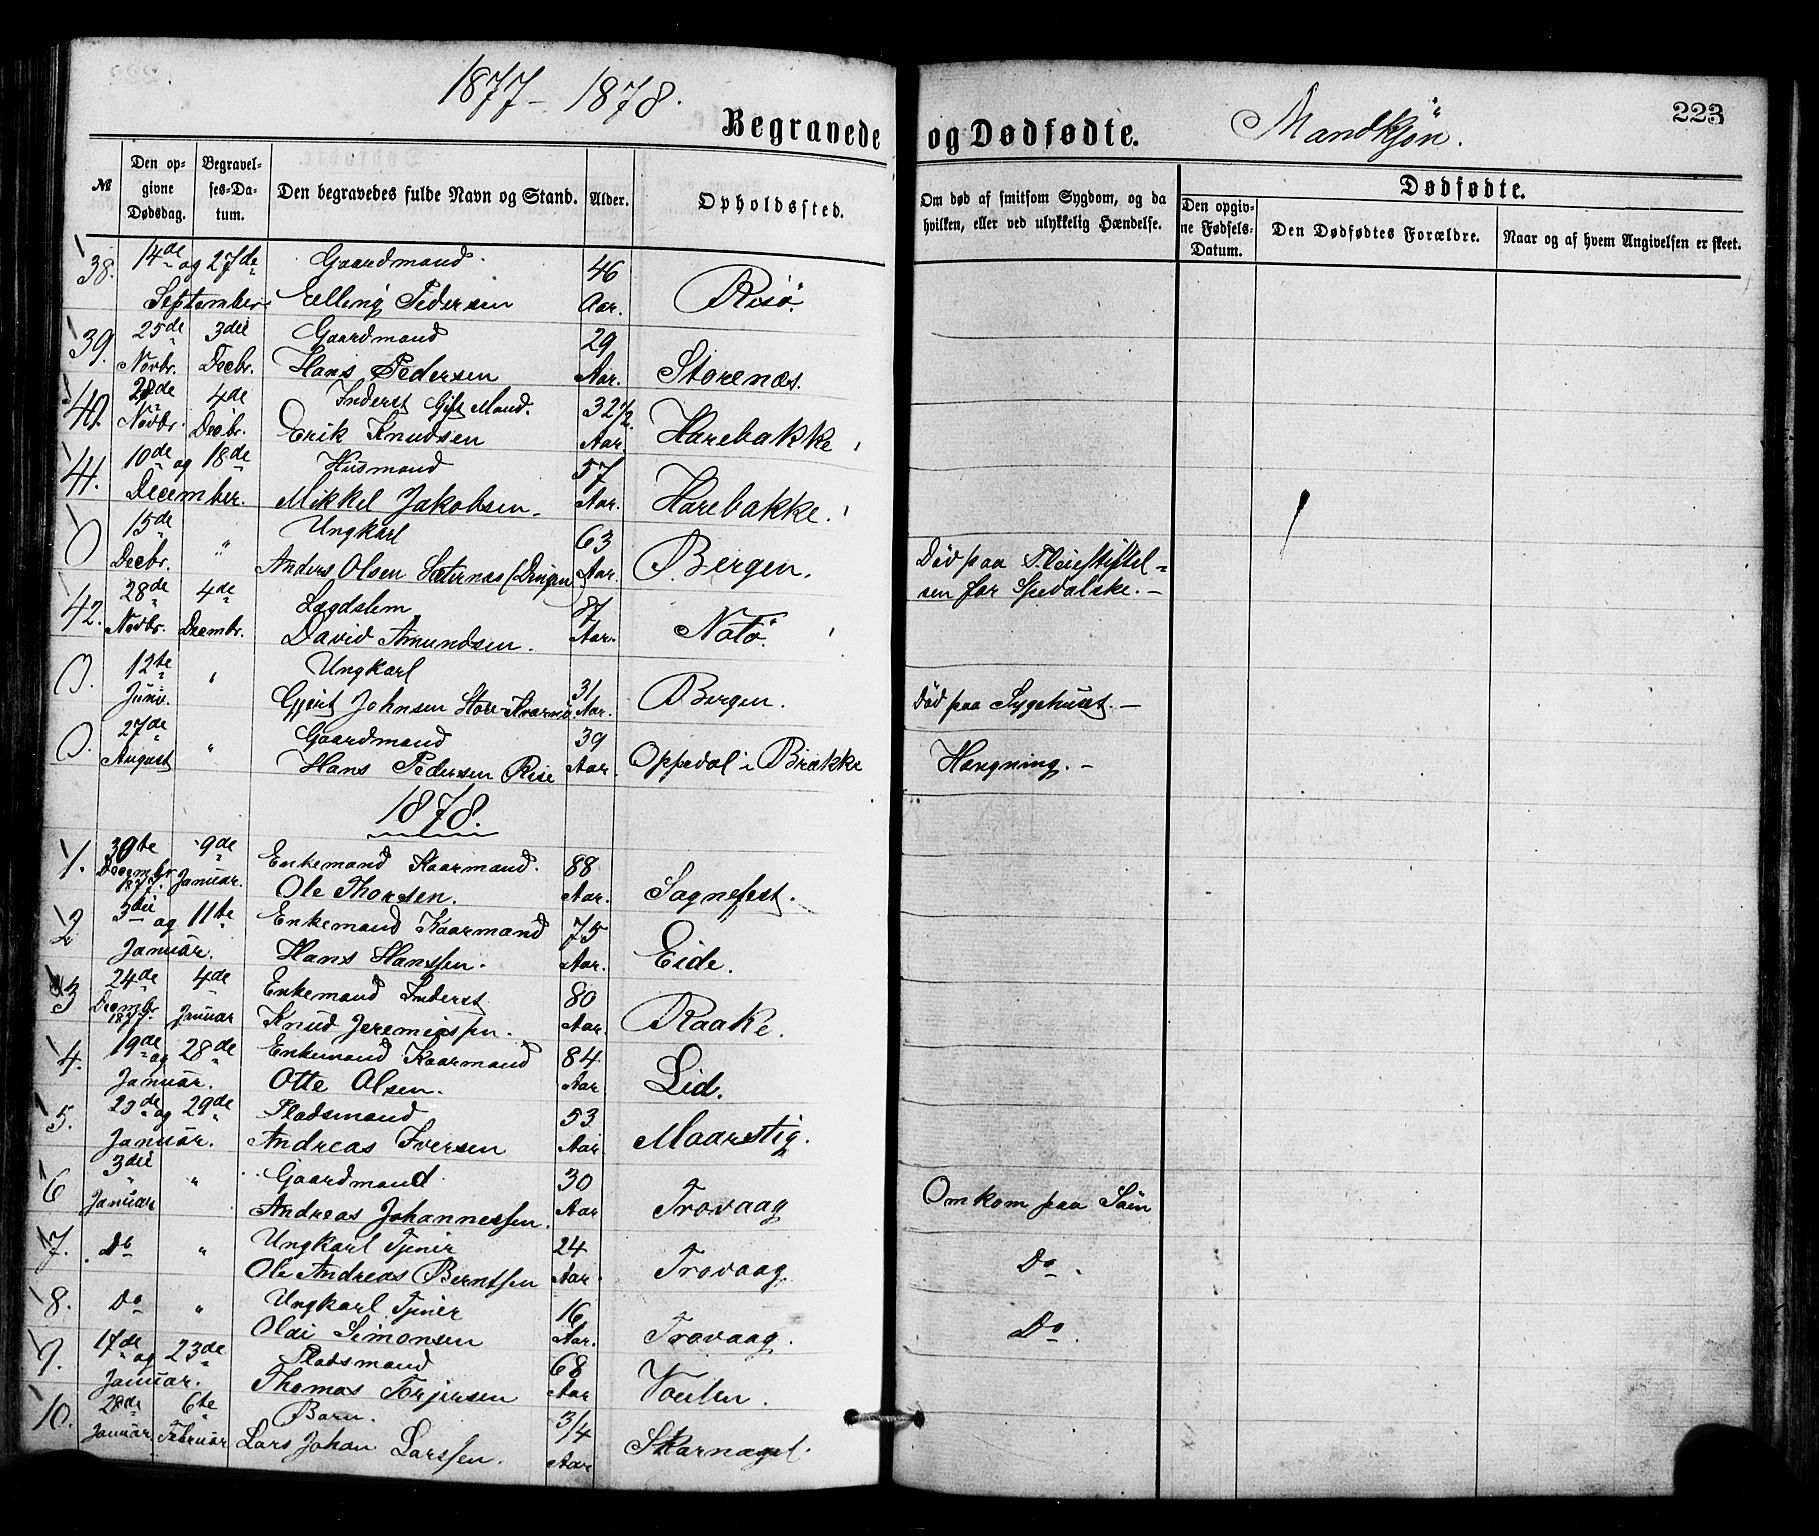 1877-1878.
Begravede og Dødfødte.
Mandkjøn.
223
№
Den opgivne Dødsdag.
Begravelses-Datum.
Den begravedes fulde Navn og Stand.
Alder.
Opholdssted.
Om død af smitsom Sygdom, og da hvilken, eller ved ulykkelig Hændelse.
Dødfødte.
Den opgivne Fødsels-Datum.
Den Dødfødtes Forældre.
Naar og af hvem Angivelsen er skeet.
38. 14de og 27de Gaardmand. 46
September Elling Pedersen Aar. Risö.
39. 25de 3die Gaardmand 29
Novbr. Decbr. Hans Pedersen Aar. Storenæs.
40. 28de 4de Inderst Gift Mand. 32 1/2
Novbr. Decbr. Erik Knudsen Aar. Harebakke
41. 10de og 18de Husmand 57
December. Mikkel Jakobsen Aar. Harebakke.
0 15de " Ungkarl 63
Decbr. Anders Olsen Aar. Bergen. Död paa Pleiestiftel=
sen for Spedalske. -
42. 28de 4de Lægdslem 87
Novbr. Decmbr. David Amundsen. Aar. Notö.
0. 12te " Ungkarl 31
Juni. Gjert Johnsen Store Aar. Bergen. Död paa Sygehuset. -
0. 27de " Gaardmand 39
August Hans Pedersen Rise Aar. Oppedal i Brække Hængning. -
1878.
1. 30te 9de Enkemand Kaarmand. 88
Decembr 1877. Januar. Ole Thorsen. Aar. Sognefest.
2 3die og 11te Enkemand Kaarmand 75
Januar. Hans Hanssen. Aar. Eide.
3 24de 4de Enkemand Inderst 80
Decmbr 1877. Januar Knud Jeremiassen. Aar. Raake.
4. 19de og 28de Enkemand Kaarmand 84
Januar. Otte Olsen. Aar Lid.
5. 23de og 29de Pladsmand 53
Januar. Andreas Iversen Aar. Maarstig.
6 3die " Gaardmand. 30
Januar Andreas Johannessen. Aar Trovaag Omkom paa Söin
7. Do " Ungkarl Tjener 24
Ole Andreas Berntsen Aar. Trovaag. Do.
8. Do " Ungkarl Tjener 16
Oldi Simonsen Aar. Trovaag. Do.
9. 17de og 23de Pladsmand 68
Januar. Thomas Torjersen Aar
10. 28de 6te Barn. 3/4
Januar Februar Lars Johan Larssen. Aar Skarnagel.